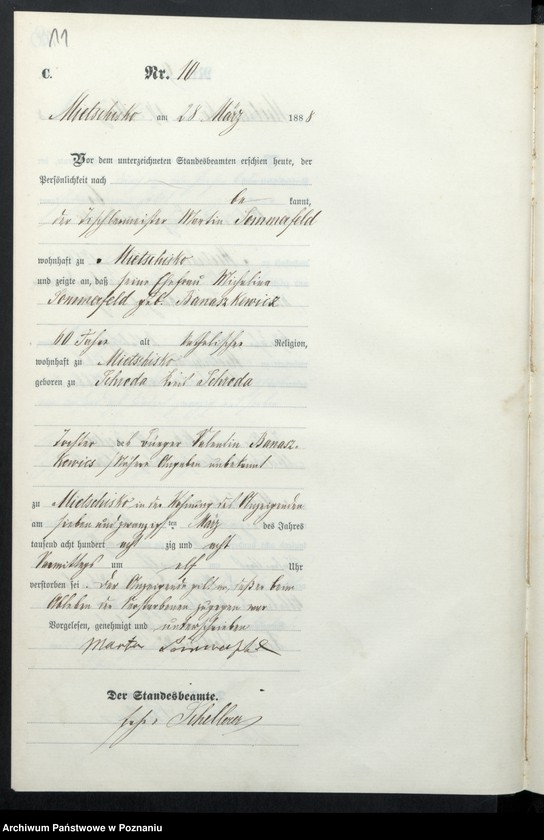 11
C.
Nr. 10
Mielschisko am 28. März 1888
Vor dem unterzeichneten Standesbeamten erschien heute, der
Persönlichkeit nach
be kannt,
der Tischlermeister Martin Sommerfeld
wohnhaft zu Mietschisko
und zeigte an, daß seine Ehefrau Michalina
Sommerfeld geb. Banaszkewicz
60 Jahre alt katholischer Religion,
wohnhaft zu Mietschisko
geboren zu Schroda Kreis Schroda
Tochter des Bürger Valentin Banasz-
kewics, Nähere Angaben unbekannt
zu Mietschisko in der Wohnung des Anzeigenden
am sieben und zwanzigsten März des Jahres
tausend acht hundert acht zig und acht
Vormittags um elf Uhr
verstorben sei. Der Anzeigende daß er beim
Ableben der Verstorbenen zugegen war
Vorgelesen, genehmigt und unterschrieben
Martin
Der Standesbeamte.
Schellner
Archiwum Państwowe w Poznaniu